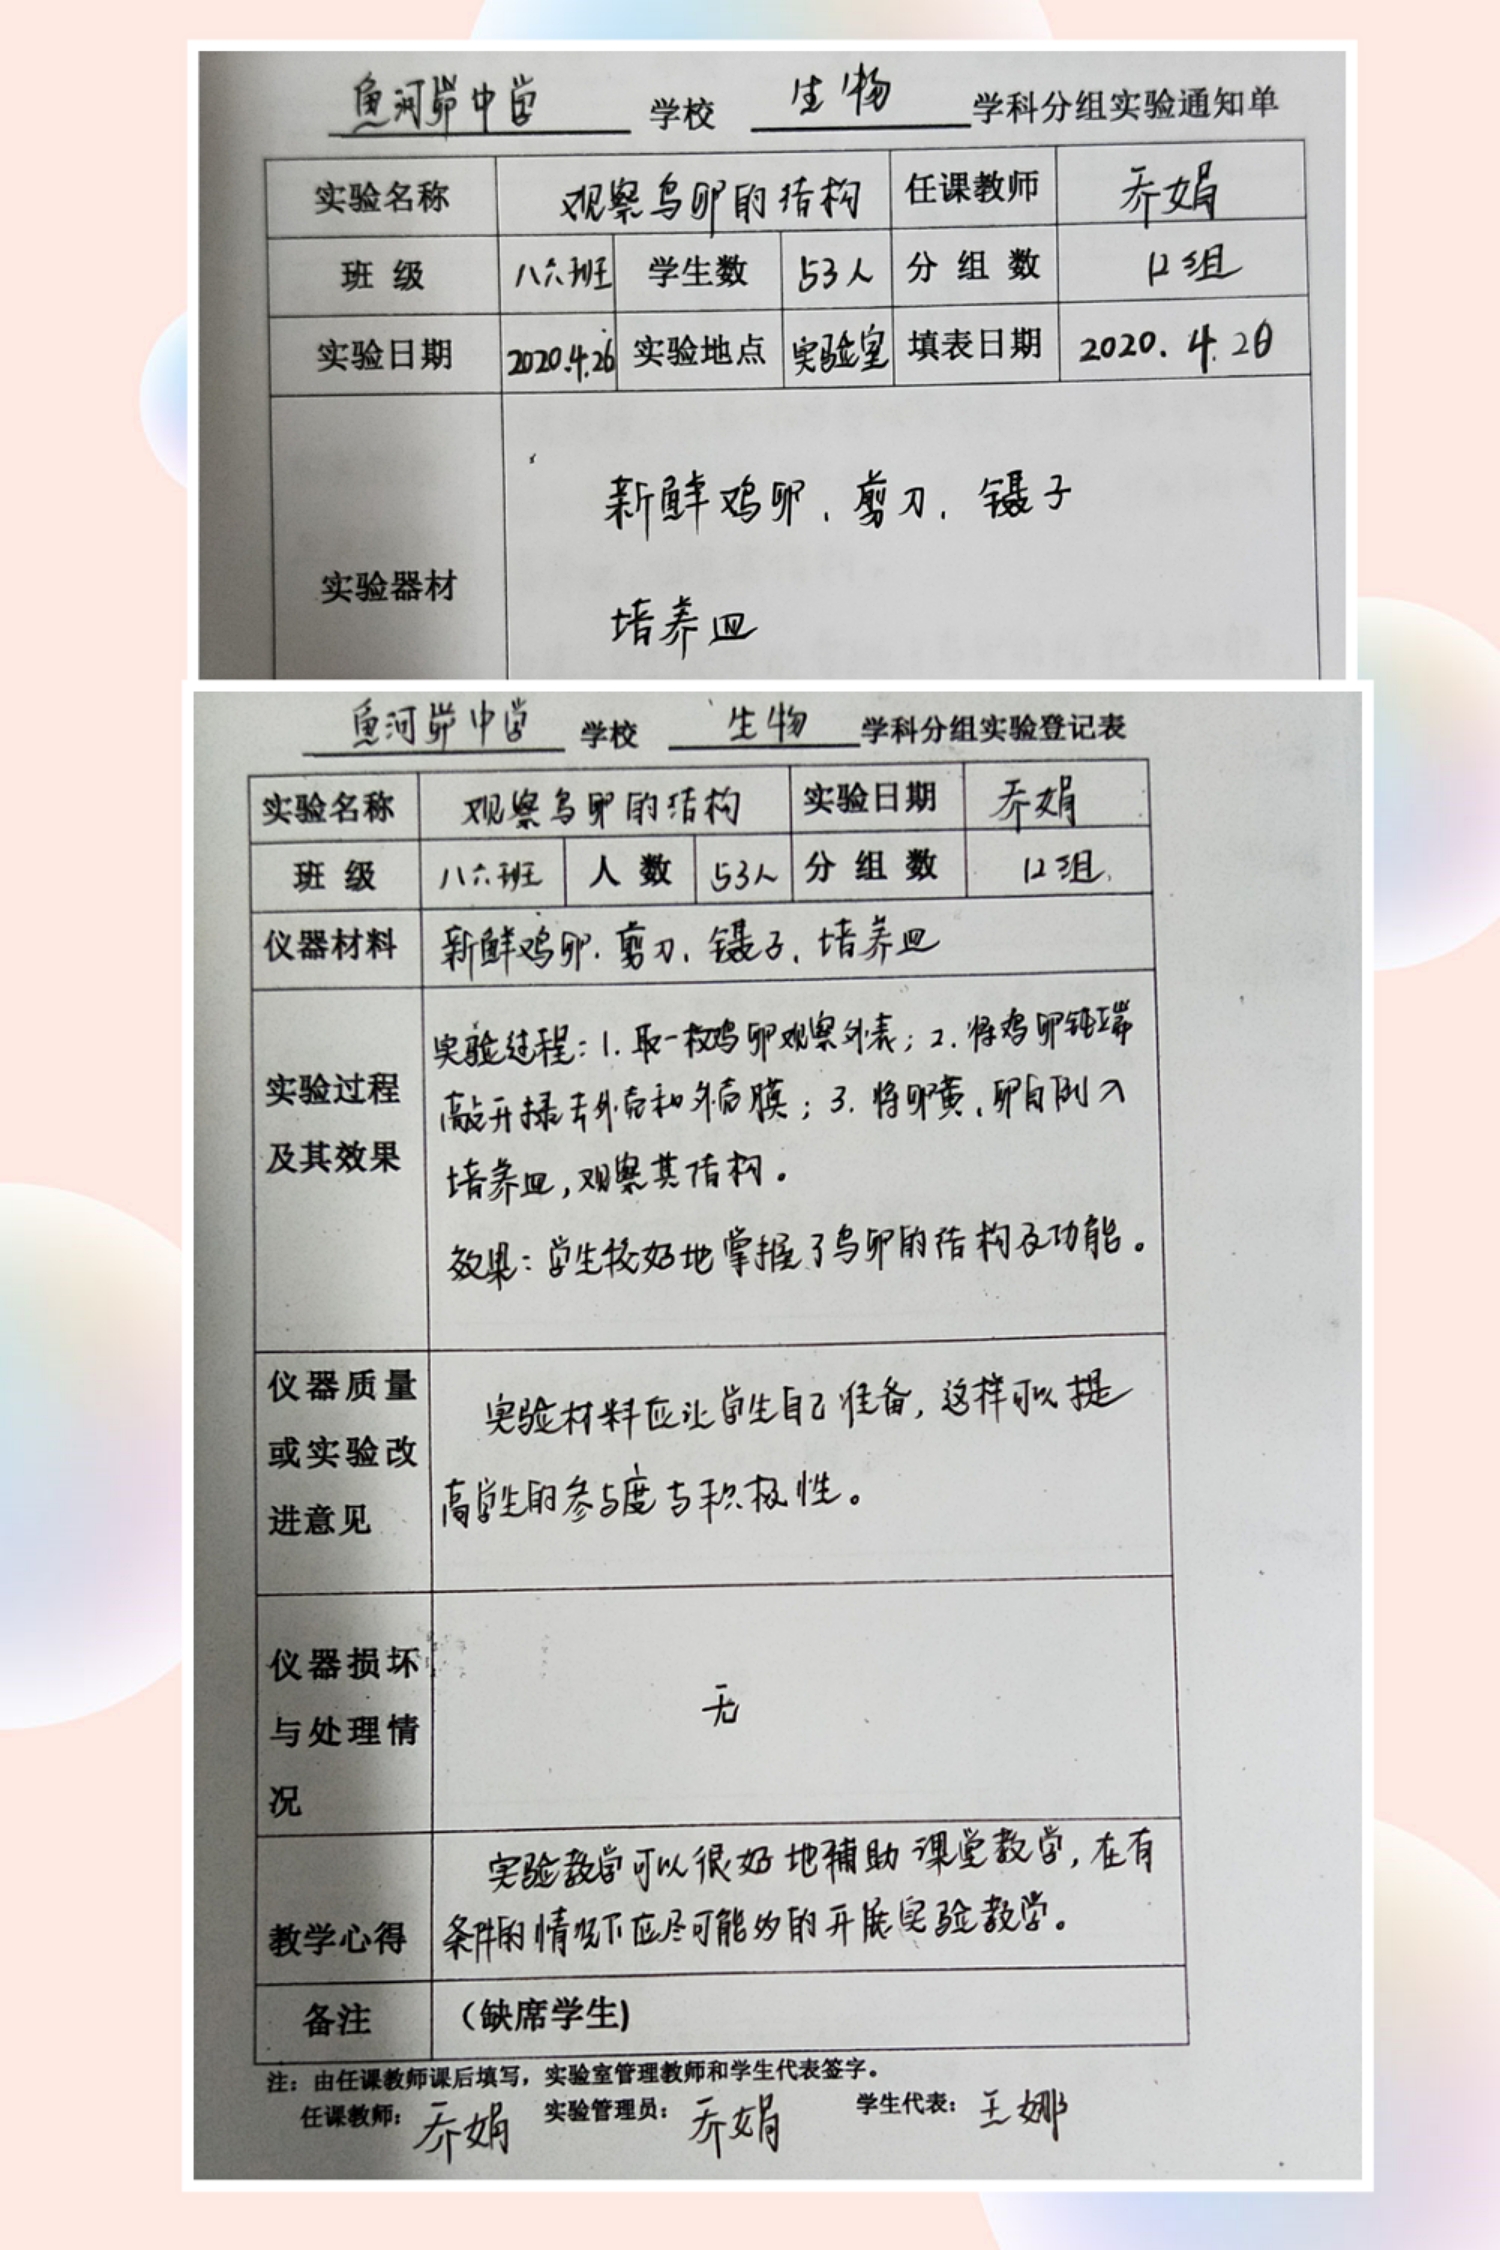 鱼河峁中学 学校 生物 学科分组实验通知单
实验名称 观察鸟卵的结构 任课教师 乔娟
班 级 八六班 学生数 53人 分 组 数 12组
实验日期 2020.4.26 实验地点 实验室 填表日期 2020.4.20
新鲜鸡卵、剪刀、镊子
实验器材
培养皿
鱼河峁中学 学校 生物 学科分组实验登记表
实验名称 观察鸟卵的结构 实验日期 乔娟
班 级 八六班 人 数 53人 分 组 数 12组
仪器材料 新鲜鸡卵、剪刀、镊子、培养皿
实验过程
及其效果
实验过程：1. 取一枚鸡卵观察外表；2. 将鸡卵钝端
敲开除去外壳和外壳膜；3. 将卵黄、卵白倒入
培养皿，观察其结构。
效果：学生较好地掌握了鸟卵的结构及功能。
仪器质量
或实验改
进意见
实验材料应让学生自己准备，这样可以提
高学生的参与度与积极性。
仪器损坏
与处理情
况
无
教学心得
实验教学可以很好地辅助课堂教学，在有
条件的情况下应尽可能多的开展实验教学。
备注 （缺席学生)
注：由任课教师课后填写，实验室管理教师和学生代表签字。
任课教师：乔娟 实验管理员：乔娟 学生代表：王娜